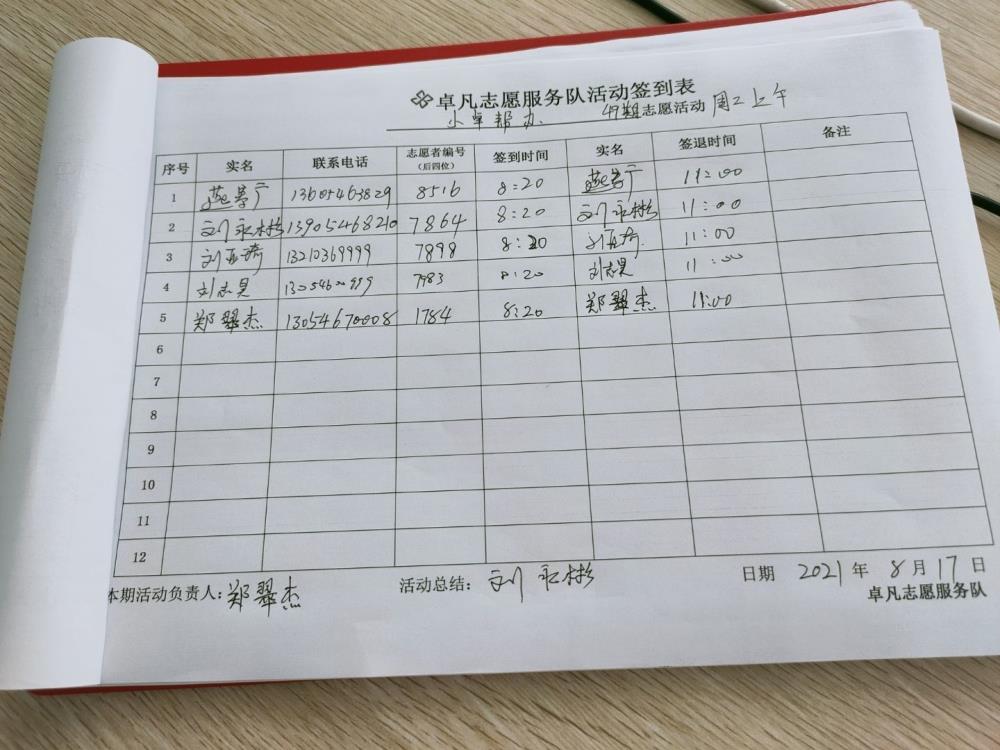 卓凡志愿服务队活动签到表
小卓帮办 49期志愿活动 周二上午
序号 实名 联系电话 志愿者编号(后四位) 签到时间 实名 签退时间 备注
1 13605463829 8516 8:20 11:00
2 刘永彬 13905468210 7864 8:20 刘永彬 11:00
3 刘亚琦 13210369999 7898 8:20 刘亚琦 11:00
4 刘志昊 7983 8:20 刘志昊 11:00
5 郑翠杰 13054670008 1784 8:20 郑翠杰 11:00
6
7
8
9
10
11
12
本期活动负责人:郑翠杰 活动总结:刘永彬 日期 2021年8月17日
卓凡志愿服务队